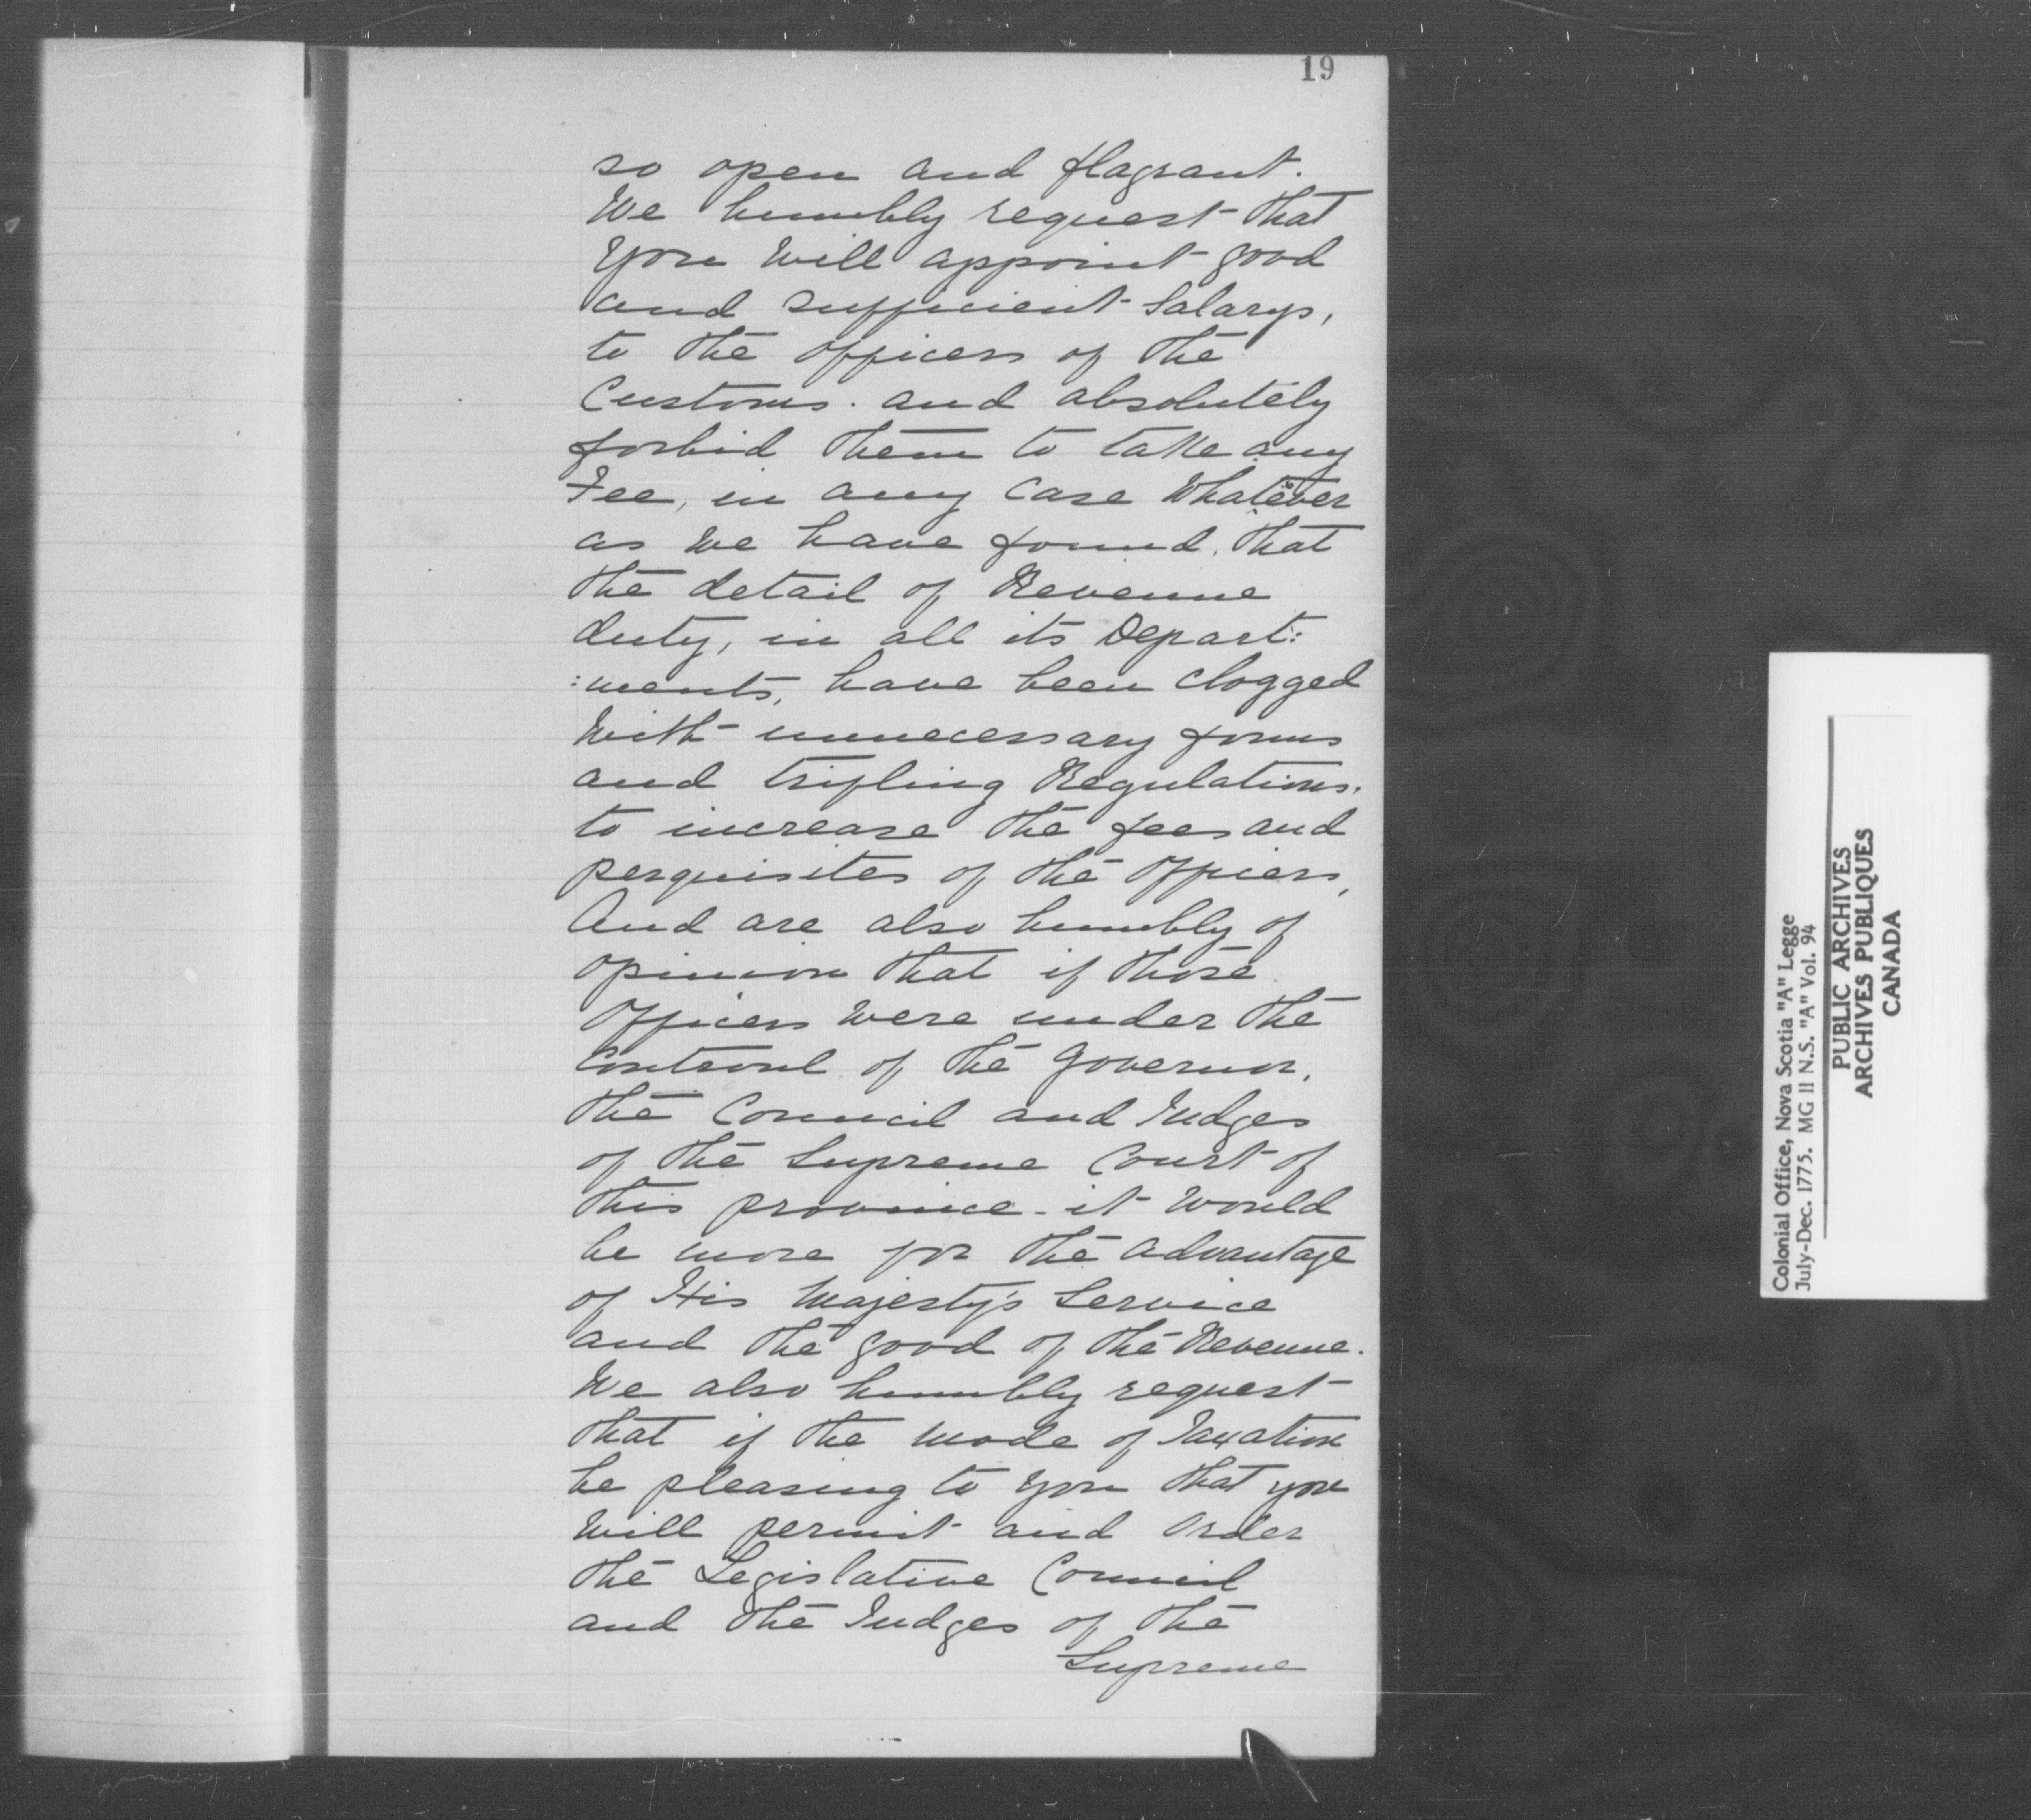 19
so open and flagrant.
We humbly request that
you will appoint good
and sufficient Salarys,
to the officers of the
Customs. and absolutely
forbid them to take any
Fee, in any case Whatever
as We have found, that
the detail of Revenue
duty, in all its Depart:
:ments, have been clogged
With unnecessary forms
and trifling Regulations.
to increase the fees and
perquisites of the Officers,
And are also humbly of
opinion that if those
Officers Were under the
Controul of the Governor,
the Council and Judges
of the Supreme Court of
this province - it Would
be more for the advantage
of His Majesty's Service
and the good of the Revenue.
We also humbly request
that if the Mode of Taxation
be pleasing to you that you
Will permit and Order
the Legislative Council
and the Judges of the
Supreme
Colonial Office, Nova Scotia "A" Legge
July-Dec. 1775. MG 11 N.S. "A" Vol. 94
PUBLIC ARCHIVES
ARCHIVES PUBLIQUES
CANADA